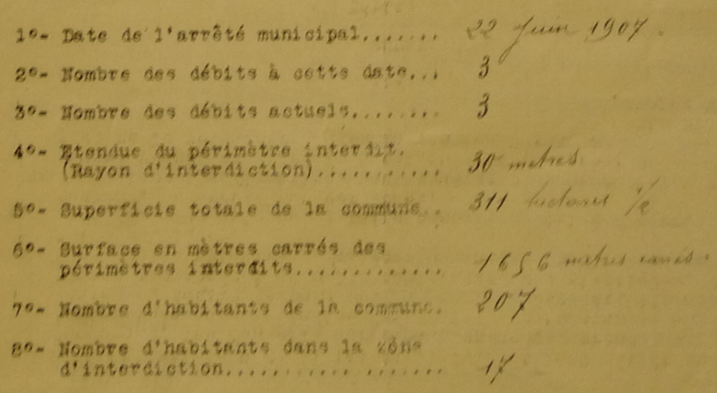 1º- Date de l'arrêté municipal....... 22 Juin 1907.
2º- Nombre des débits à cette date... 3
3º- Nombre des débits actuels........ 3
4º- Etendue du périmètre interdit.
(Rayon d'interdiction)........... 30 mètres
5º- Superficie totale de la commune.. 311 hectares ½
6º- Surface en mètres carrés des
périmètres interdits............. 1656 mètres carrés.
7º- Nombre d'habitants de la commune. 207
8º- Nombre d'habitants dans la zône
d'interdiction........... ....... 17